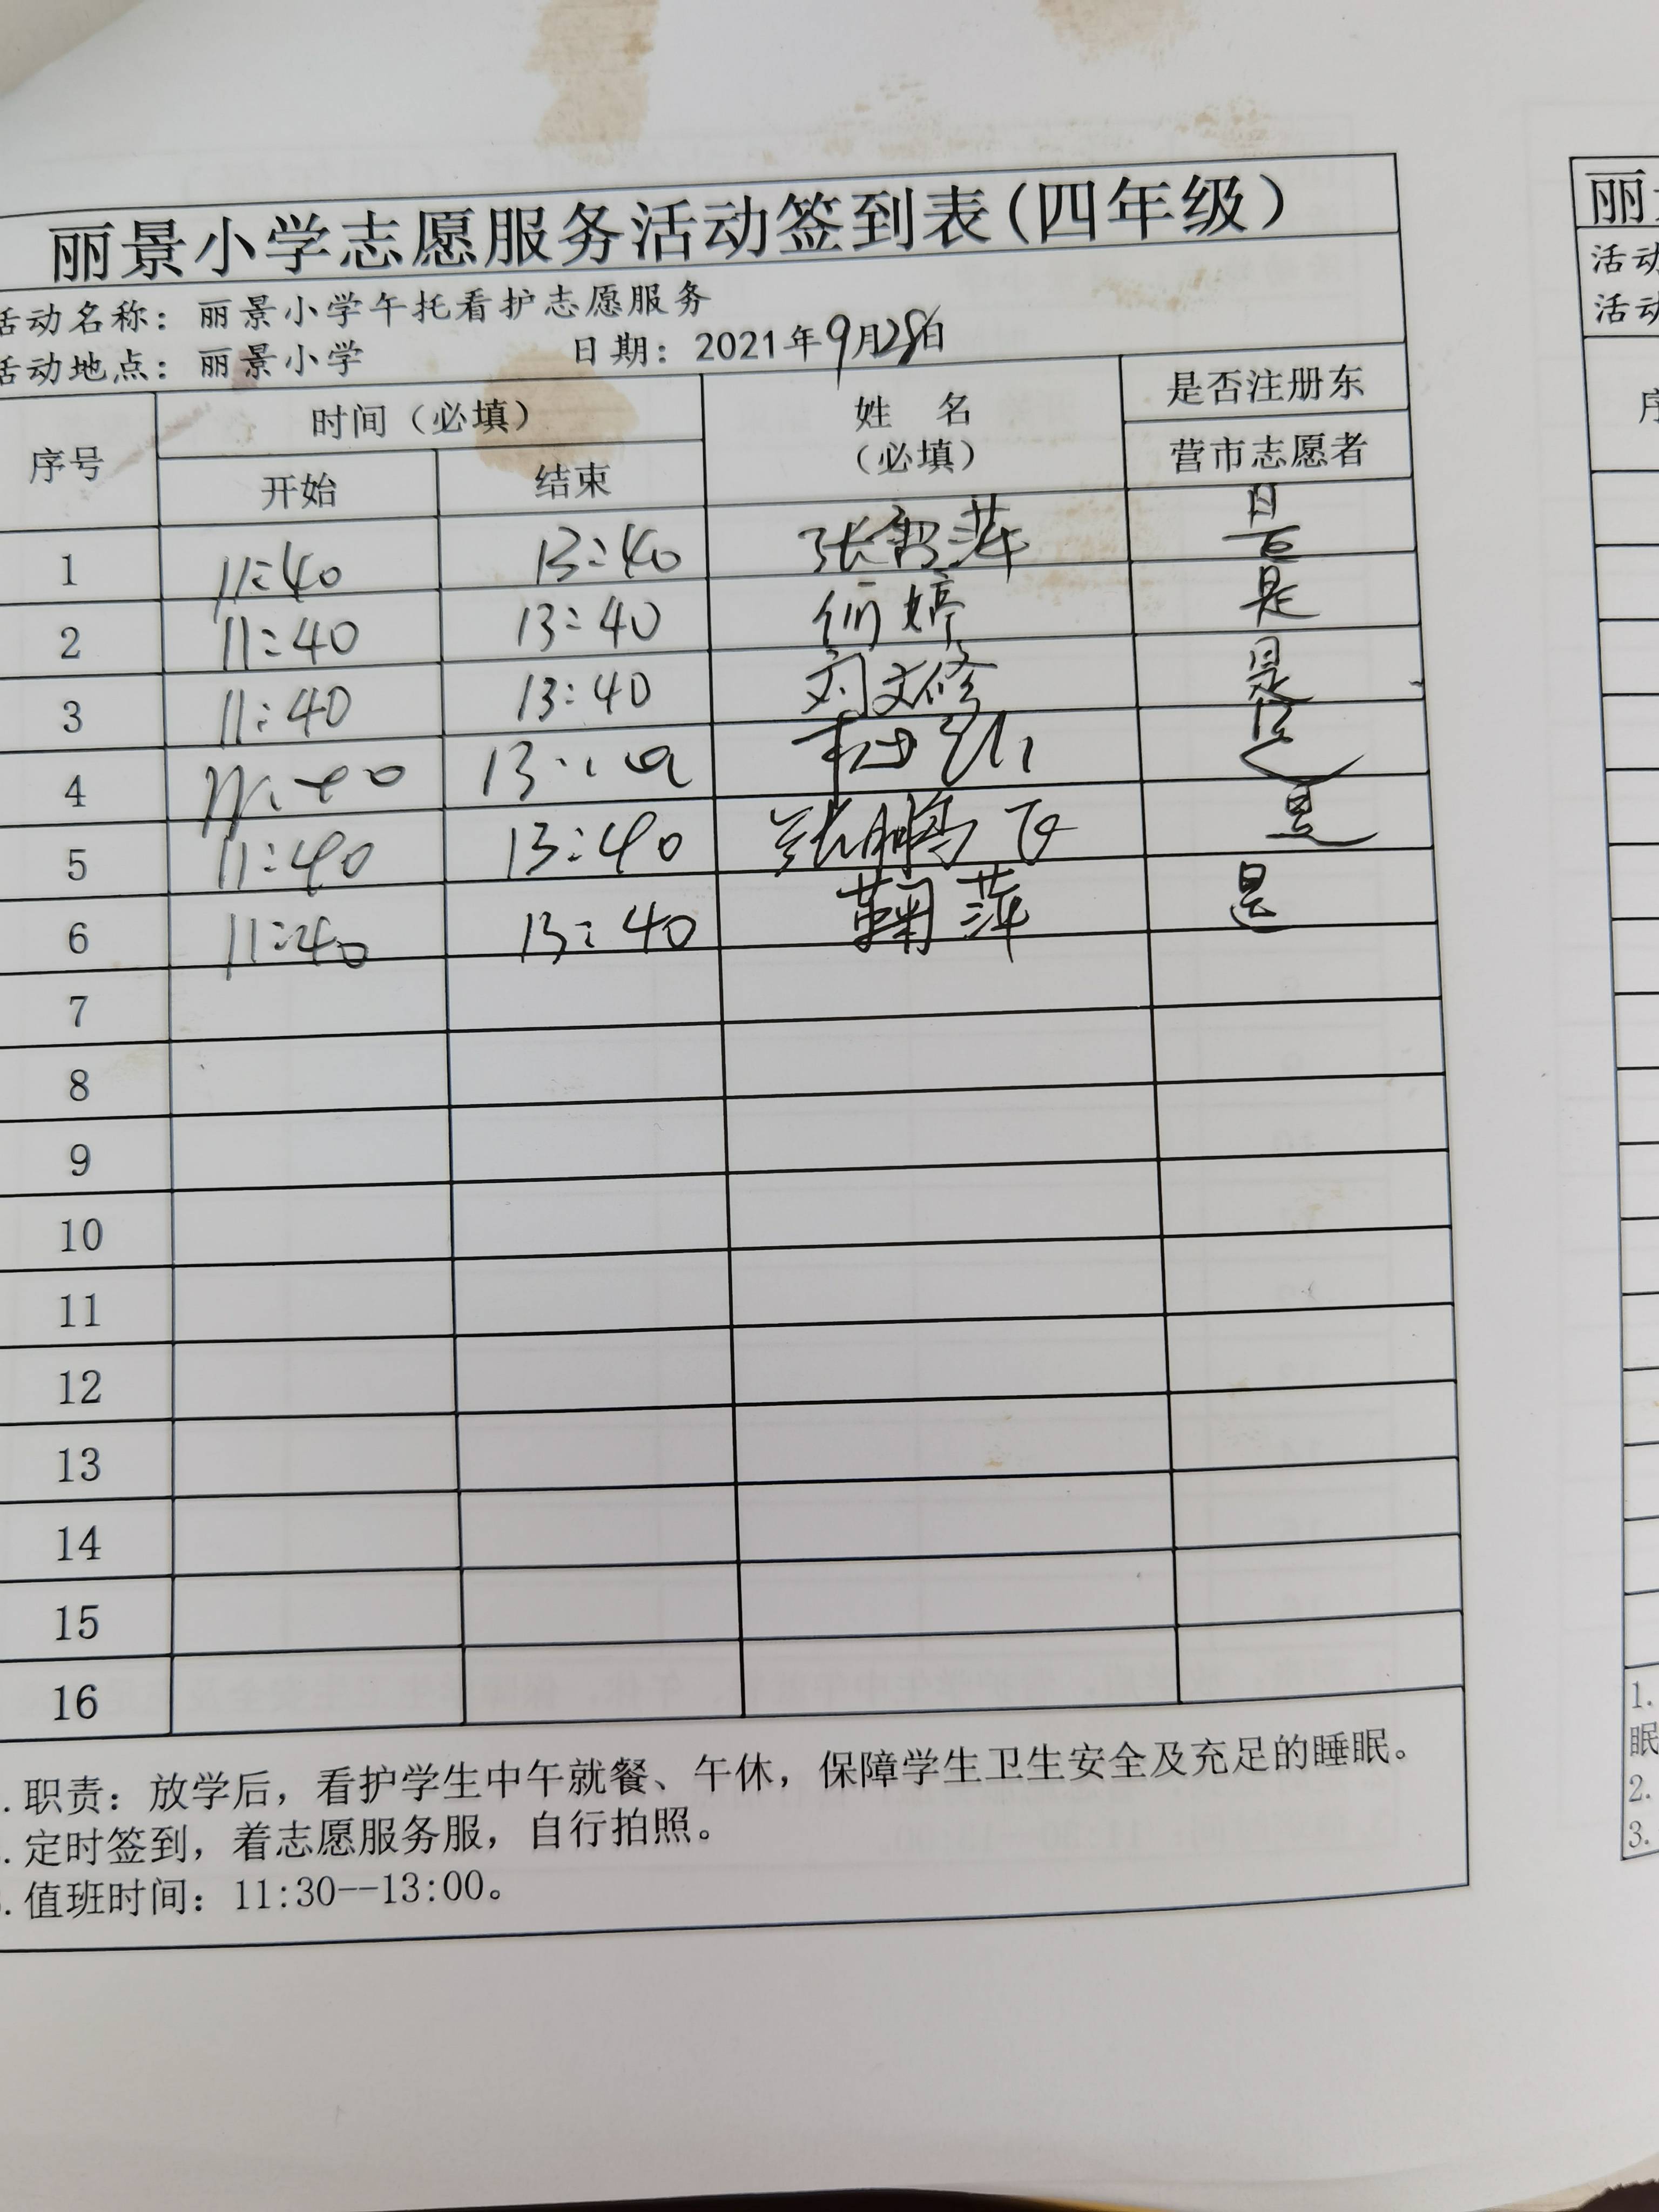 丽景小学志愿服务活动签到表(四年级)
活动名称：丽景小学午托看护志愿服务
活动地点：丽景小学 日期：2021年9月28日
序号 时间（必填） 姓 名（必填） 是否注册东营市志愿者
开始 结束
1 11:40 13:40 张 萍 是
2 11:40 13:40 婷 是
3 11:40 13:40 刘文修 是
4 是
5 11:40 13:40 张鹏飞 是
6 11:40 13:40 鞠萍 是
7
8
9
10
11
12
13
14
15
16
.职责：放学后，看护学生中午就餐、午休，保障学生卫生安全及充足的睡眠。
.定时签到，着志愿服务服，自行拍照。
.值班时间：11:30--13:00。
丽
活动
活动
序
1.
眠
2.
3.